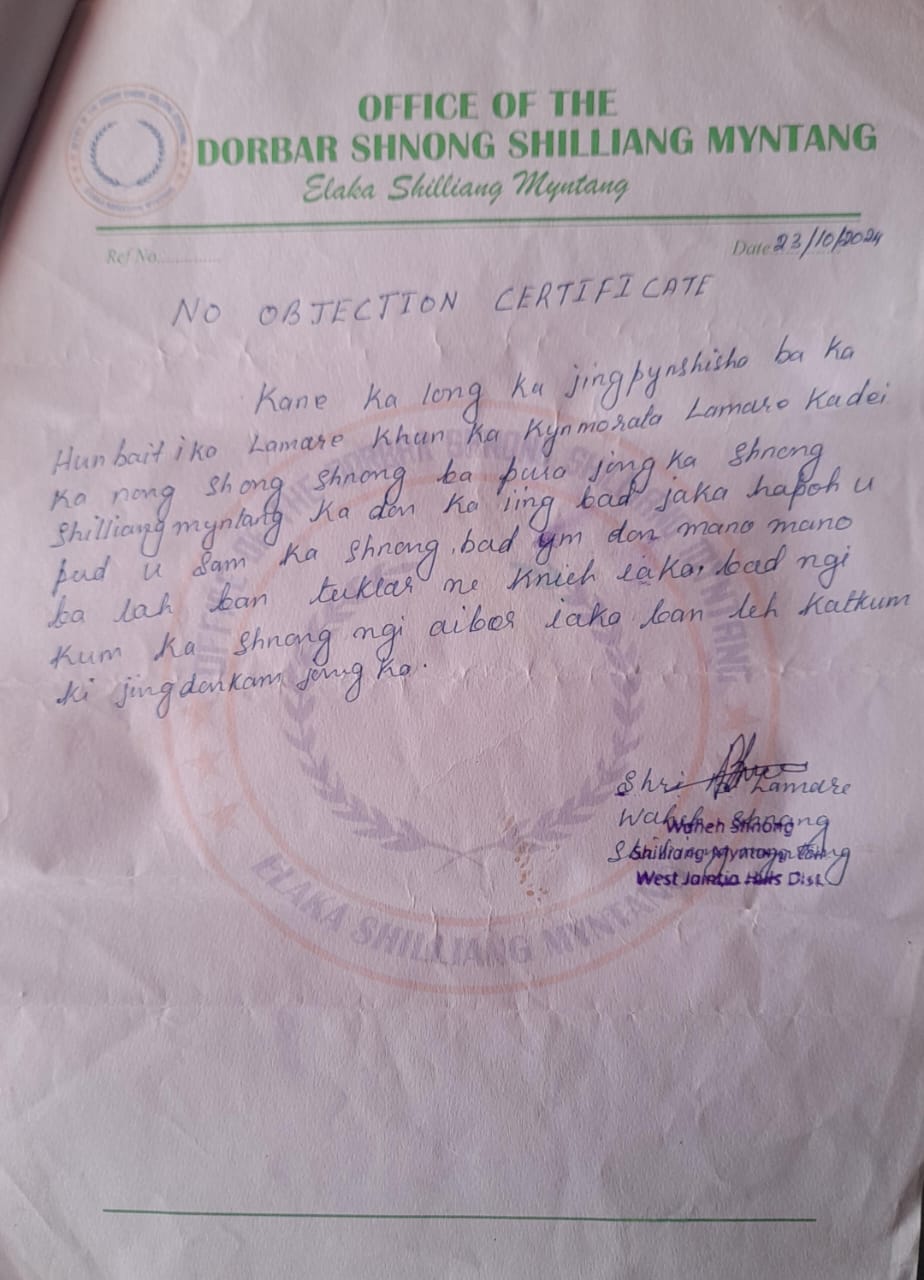 OFFICE OF THE
DORBAR SHNONG SHILLIANG MYNTANG
Elaka Shilliang Myntang
Ref No.............
Date 23/10/2024
NO OBJECTION CERTIFICATE
Kane ka long ka jingpynshisha ba ka
Hunbait iko Lamare khun ka Kynmorala Lamare Kadei
ka nong shong shnong ba pura jong ka shnong
Shilliangmyntang ka don ka iing bad jaka hapoh u
pud u sam ka shnong, bad ym don mano mano
ba lah ban tuklar ne knieh iaka, bad ngi
kum ka shnong ngi aibor iaka ban leh katkum
ki jingdonkam jong ka.
Shri Lamare
Waheh Shnong
Waheh Shnong
Shilliang Myntang
West Jaintia Hills Dist.
ELAKA SHILLIANG MYNTANG